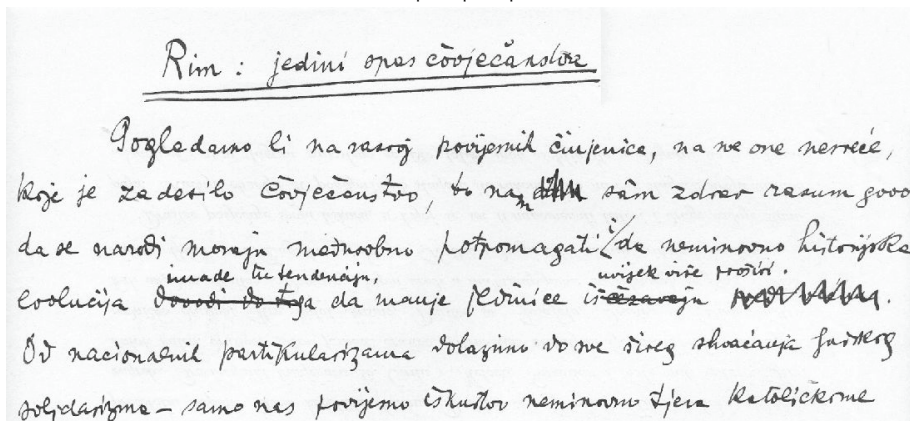 Rim : jedini spas čovječanstva
Pogledamo li na razvoj povijesnih činjenica, na sve one nesreće,
koje je zadesilo čovječanstvo, to nam sâm zdrav razum govo
da se narodi moraju međusobno potpomagati i da neminovno historijska
imade tu tendenciju, uvijek više
evolucija dovodi do toga da manje jedinice iščezavaju
Od nacionalnih partikularizama dolazimo do sve šireg shvaćanja ljudskog
solidarizma – samo nas povijesno iskustvo neminovno tjera katoličkome